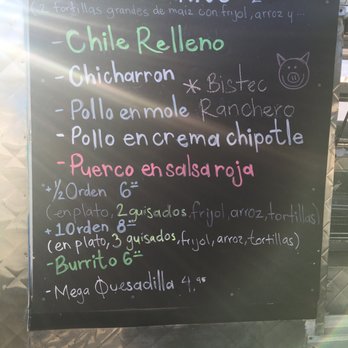 (2 tortillas grandes de maiz con frijol, arroz y ...
- Chile Relleno
- Chicharron
* Bistec Ranchero
- Pollo en mole
- Pollo en crema chipotle
- Puerco en salsa roja
+ ½ Orden 6=
(en plato, 2 guisados, frijol, arroz, tortillas)
+ 1 Orden 8=
(en plato, 3 guisados, frijol, arroz, tortillas)
- Burrito 6=
- Mega Quesadilla 4.95